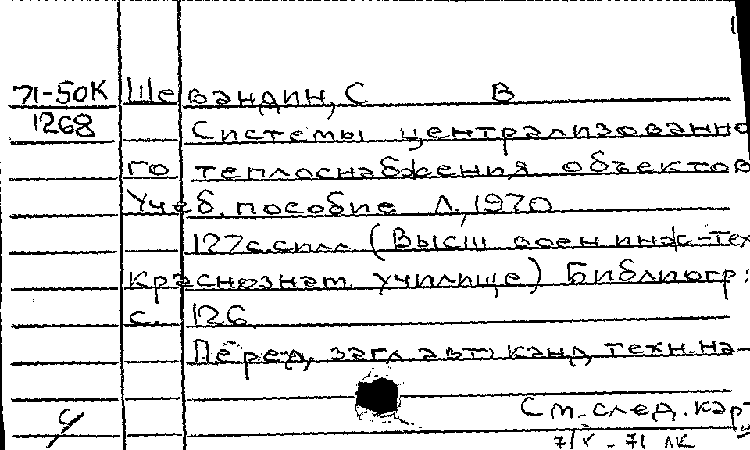 71-50К Шевандин, С В
1268 Системы централизованно
го теплоснабжения объектов
Учеб. пособие Л., 1970
127 с. с илл. (Высш воен инж-тех
Краснознам. училище) Библиогр:
с. 126
Перед загл авт: канд техн. на-
См. след. кар-